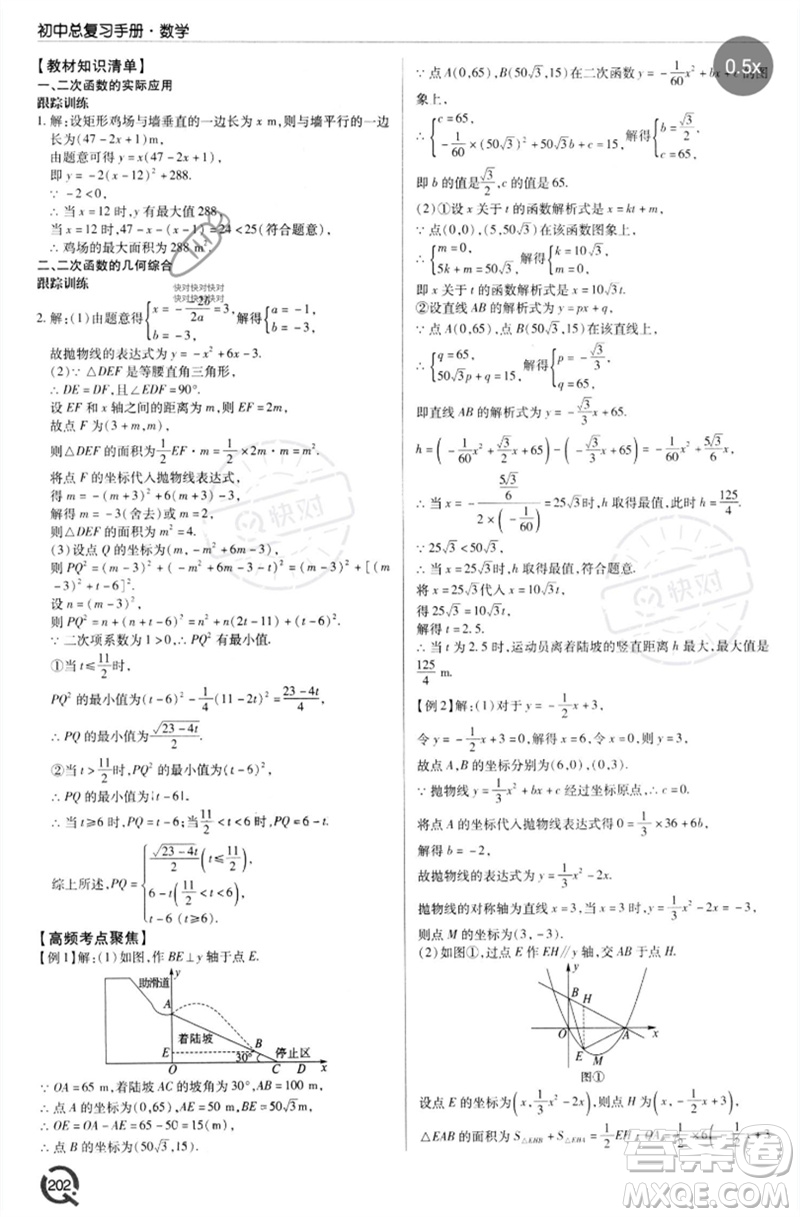 初中总复习手册·数学
【教材知识清单】
一、二次函数的实际应用
跟踪训练
1. 解:设矩形鸡场与墙垂直的一边长为 x m,则与墙平行的一边
长为(47-2x+1)m,
由题意可得 y=x(47-2x+1),
即 y=-2(x-12)²+288.
∵ -2<0,
∴ 当 x=12 时,y 有最大值 288,
当 x=12 时,47-2x+1=24<25(符合题意),
∴ 鸡场的最大面积为 288 m².
二、二次函数的几何综合
跟踪训练
快对快对快对
快对快对快对
2. 解:(1)由题意得{x=-2b/2a=3, b=-3, 解得{a=-1, b=-3,
故抛物线的表达式为 y=-x²+6x-3.
(2)∵ △DEF 是等腰直角三角形,
∴ DE=DF,且∠EDF=90°.
设 EF 和 x 轴之间的距离为 m,则 EF=2m,
故点 F 为(3+m,m),
则△DEF 的面积为 1/2 EF·m=1/2×2m·m=m²,
将点 F 的坐标代入抛物线表达式,
得 m=-(m+3)²+6(m+3)-3,
解得 m=-3(舍去)或 m=2,
∴ △DEF 的面积为 m²=4.
(3)设点 Q 的坐标为(m,-m²+6m-3),
则 PQ²=(m-3)²+(-m²+6m-3-t)²=(m-3)²+[(m
-3)²+t-6]².
设 n=(m-3)²,
则 PQ²=n+(n+t-6)²=n²+n(2t-11)+(t-6)²,
∵ 二次项系数为 1>0,∴ PQ² 有最小值.
①当 t≤11/2 时,
PQ² 的最小值为(t-6)²-1/4(11-2t)²=(23-4t)/4,
∴ PQ 的最小值为 √(23-4t)/2.
②当 t>11/2 时,PQ² 的最小值为(t-6)²,
∴ PQ 的最小值为|t-6|.
∴ 当 t≥6 时,PQ=t-6;当 11/2<t<6 时,PQ=6-t.
综上所述,PQ={√(23-4t)/2 (t≤11/2), 6-t(11/2<t<6), t-6(t≥6).
【高频考点聚焦】
【例1】解:(1)如图,作 BE⊥y 轴于点 E.
助滑道 y
A
着陆坡
E B 停止区
30°
O C D x
∵ OA=65 m,着陆坡 AC 的坡角为 30°,AB=100 m,
∴ 点 A 的坐标为(0,65),AE=50 m,BE=50√3 m,
∴ OE=OA-AE=65-50=15(m),
∴ 点 B 的坐标为(50√3,15),
202
0.5x
∵ 点 A(0,65),B(50√3,15)在二次函数 y=-1/60 x²+bx+c 的图
象上,
∴ {c=65, -1/60×(50√3)²+50√3b+c=15, 解得{b=√3/2, c=65,
即 b 的值是 √3/2,c 的值是 65.
(2)①设 x 关于 t 的函数解析式是 x=kt+m,
∵ 点(0,0),(5,50√3)在该函数图象上,
∴ {m=0, 5k+m=50√3, 解得{k=10√3, m=0,
即 x 关于 t 的函数解析式是 x=10√3t.
②设直线 AB 的解析式为 y=px+q,
∵ 点 A(0,65),点 B(50√3,15)在该直线上,
∴ {q=65, 50√3p+q=15, 解得{p=-√3/3, q=65,
即直线 AB 的解析式为 y=-√3/3 x+65,
h=(-1/60 x²+√3/2 x+65)-(-√3/3 x+65)=-1/60 x²+5√3/6 x,
∴ 当 x=-(5√3/6)/(2×(-1/60))=25√3 时,h 取得最值,此时 h=125/4.
∵ 25√3<50√3,
∴ x=25√3 时,h 取得最值,符合题意.
将 x=25√3 代入 x=10√3t,
得 25√3=10√3t,
解得 t=2.5,
∴ 当 t 为 2.5 时,运动员离着陆坡的竖直距离 h 最大,最大值是
125/4 m.
【例2】解:(1)对于 y=-1/2 x+3,
令 y=-1/2 x+3=0,解得 x=6,令 x=0,则 y=3,
故点 A、B 的坐标分别为(6,0),(0,3).
∵ 抛物线 y=1/3 x²+bx+c 经过坐标原点,∴ c=0,
将点 A 的坐标代入抛物线表达式得 0=1/3×36+6b,
解得 b=-2,
故抛物线的表达式为 y=1/3 x²-2x.
抛物线的对称轴为直线 x=3,当 x=3 时,y=1/3 x²-2x=-3,
则点 M 的坐标为(3,-3).
(2)如图①,过点 E 作 EH∥y 轴,交 AB 于点 H.
y
B H
O A x
E
M
图①
设点 E 的坐标为(x,1/3 x²-2x),则点 H 为(x,-1/2 x+3),
快对
快对
MXQE.COM